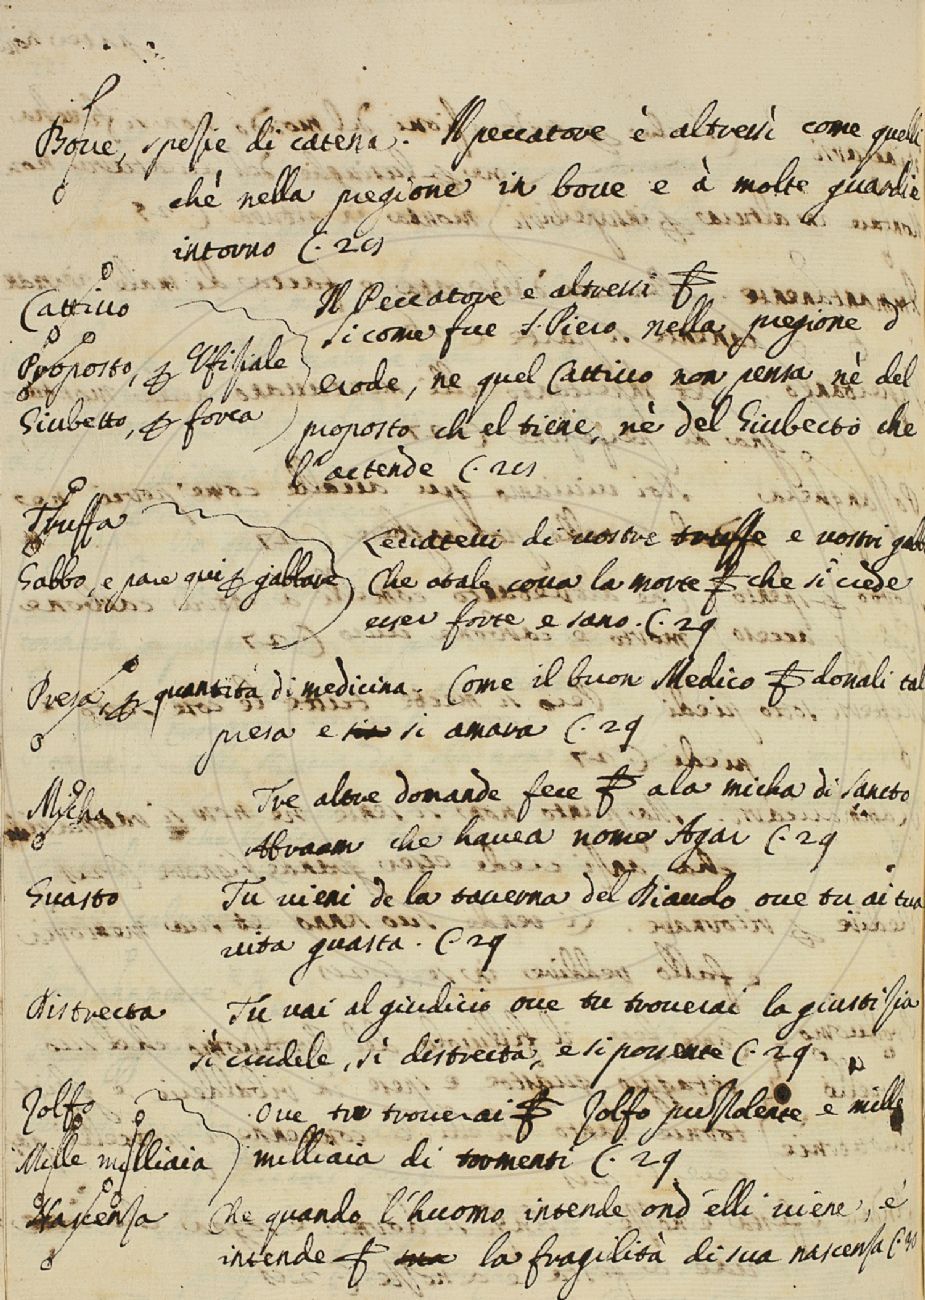 Boue, spesie di catena. Il peccatore è altressì come quelli
chè nella pregione in boue e à molte guardie
intorno C. 28
Cattiuo
Il Peccatore é altressi
si come fue S. Piero nella pregione d
Proposto, Ufisiale
erode, ne quel Cattiuo non pensa nè del
Giubetto, forca
proposto ch el tiene, nè del Giubecto che
l'actende C. 28
Truffa
Leuateui di uostre truffe e uostri gab
Gabbo, e pare qui gabbare
Che atale coua la morte che si crede
esser forte e sano. C. 29
Presa, quantità di medicina. Come il buon Medico donali tal
presa e si amara C. 29
Micha
Tre altre domande fece ala micha di sancto
Abraam che hauea nome Agar C. 29
Guasto
Tu uieni de la tauerna del Diauolo oue tu ai tua
uita guasta. C. 29
Distrecta
Tu uai al giudicio oue tu trouerai la giustisia
sì crudele, sì distrecta, e si possente C. 29
Zolfo
Oue tu trouerai Zolfo puzzolente e mille
Mille milliaia
milliaia di tormenti C. 29
Nascensa
Che quando l'huomo intende ond'elli uiene, e
intende la fragilità di sua nascensa C. 30